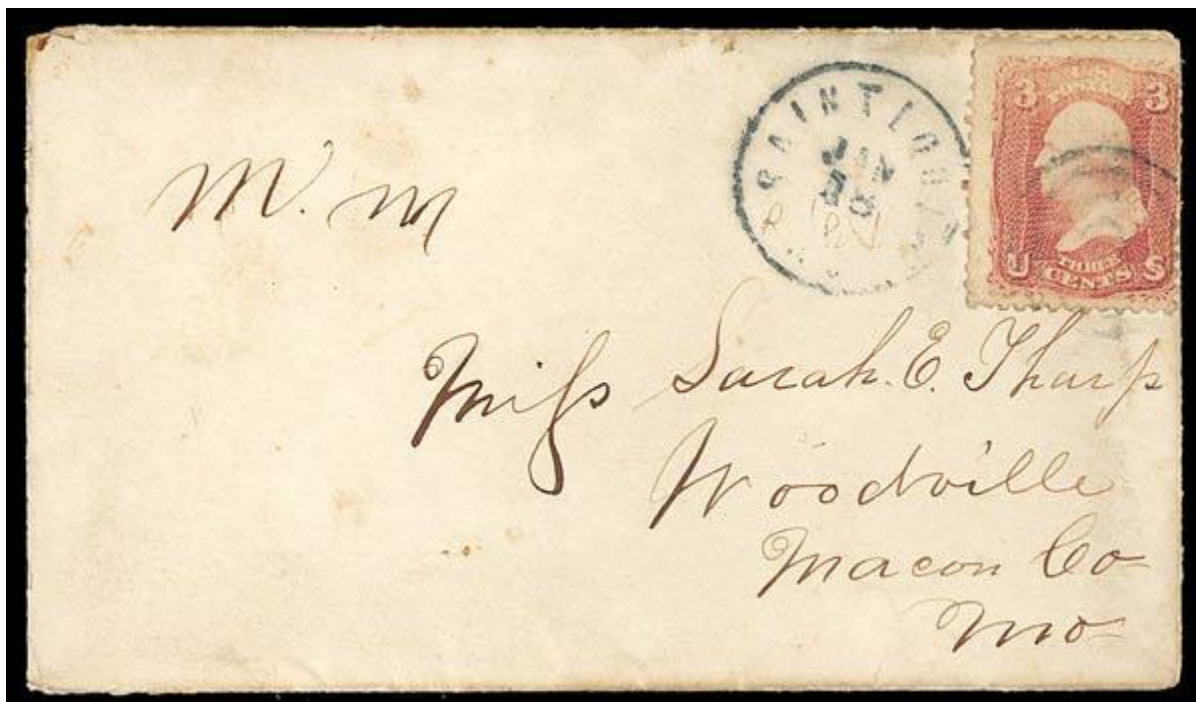 SAINT LOUIS
JAN
18
3 3
U THREE S
CENTS
M. M
Miss Sarah. E. Tharp
Woodville
Macon Co
Mo